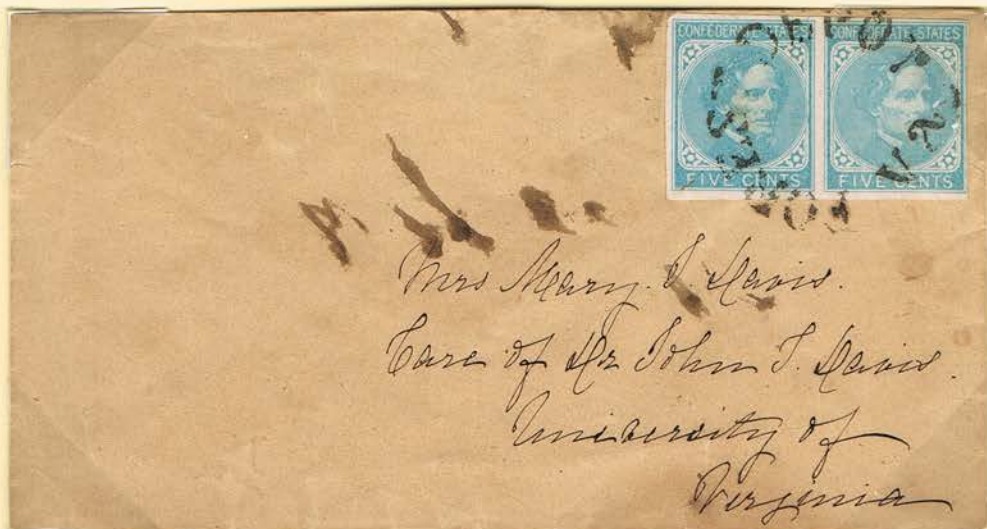 CONFEDERATE STATES
FIVE CENTS
CONFEDERATE STATES
FIVE CENTS
FOREST DEPOT VA
Mrs Mary. J. Davis.
Care of Dr John S. Davis.
University of
Virginia